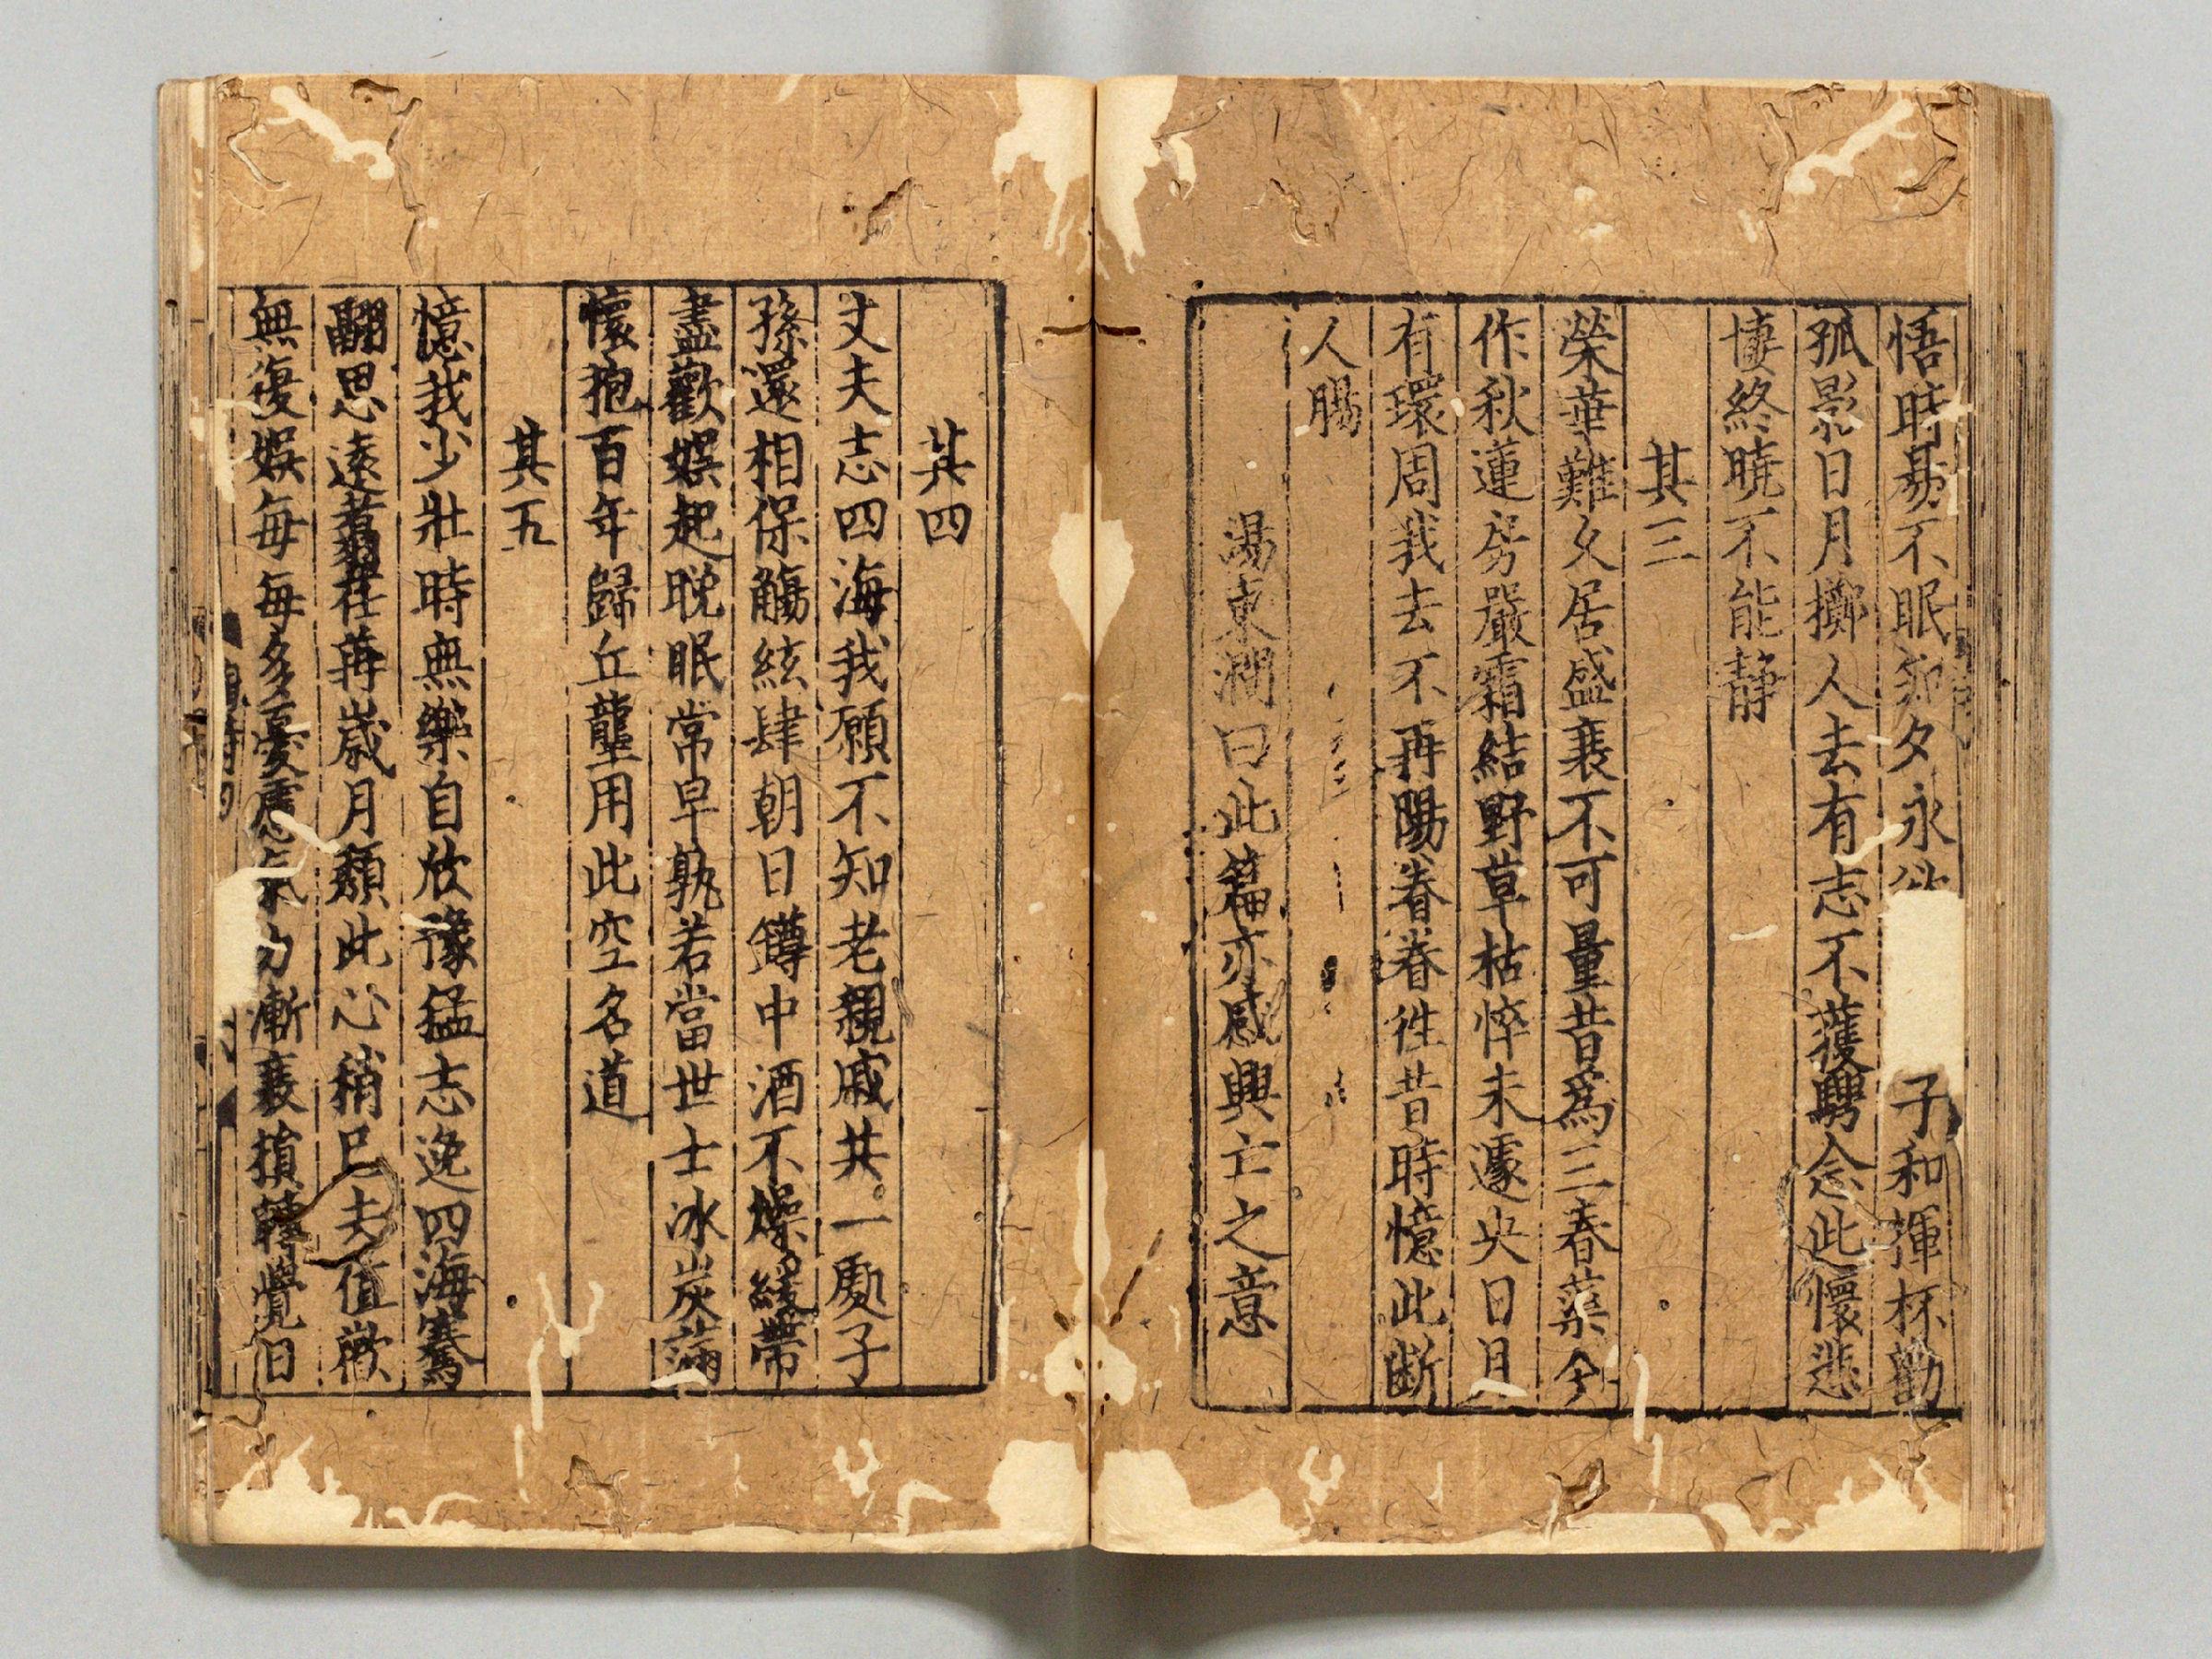 悟時易不眠知夕永欲
子和揮杯勸
孤影日月擲人去有志不獲騁念此懷悲
悽終曉不能靜
其三
榮華難久居盛衰不可量昔爲三春蕖今
作秋蓮房嚴霜結野草枯悴未遽央日月
有環周我去不再陽眷眷徃昔時憶此断
人腸
湯東澗曰此篇亦感興亡之意
其四
丈夫志四海我願不知老親戚共一處子
孫還相保觴絃肆朝日罇中酒不燥緩帶
盡歡娛起晚眠常早孰若當世士冰炭滿
懷抱百年歸丘壟用此空名道
其五
憶我少壯時無樂自欣豫猛志逸四海騫
翮思遠翥荏苒歲月頹此心稍已去值歡
無復娛每每多憂慮氣力漸衰損轉覺日